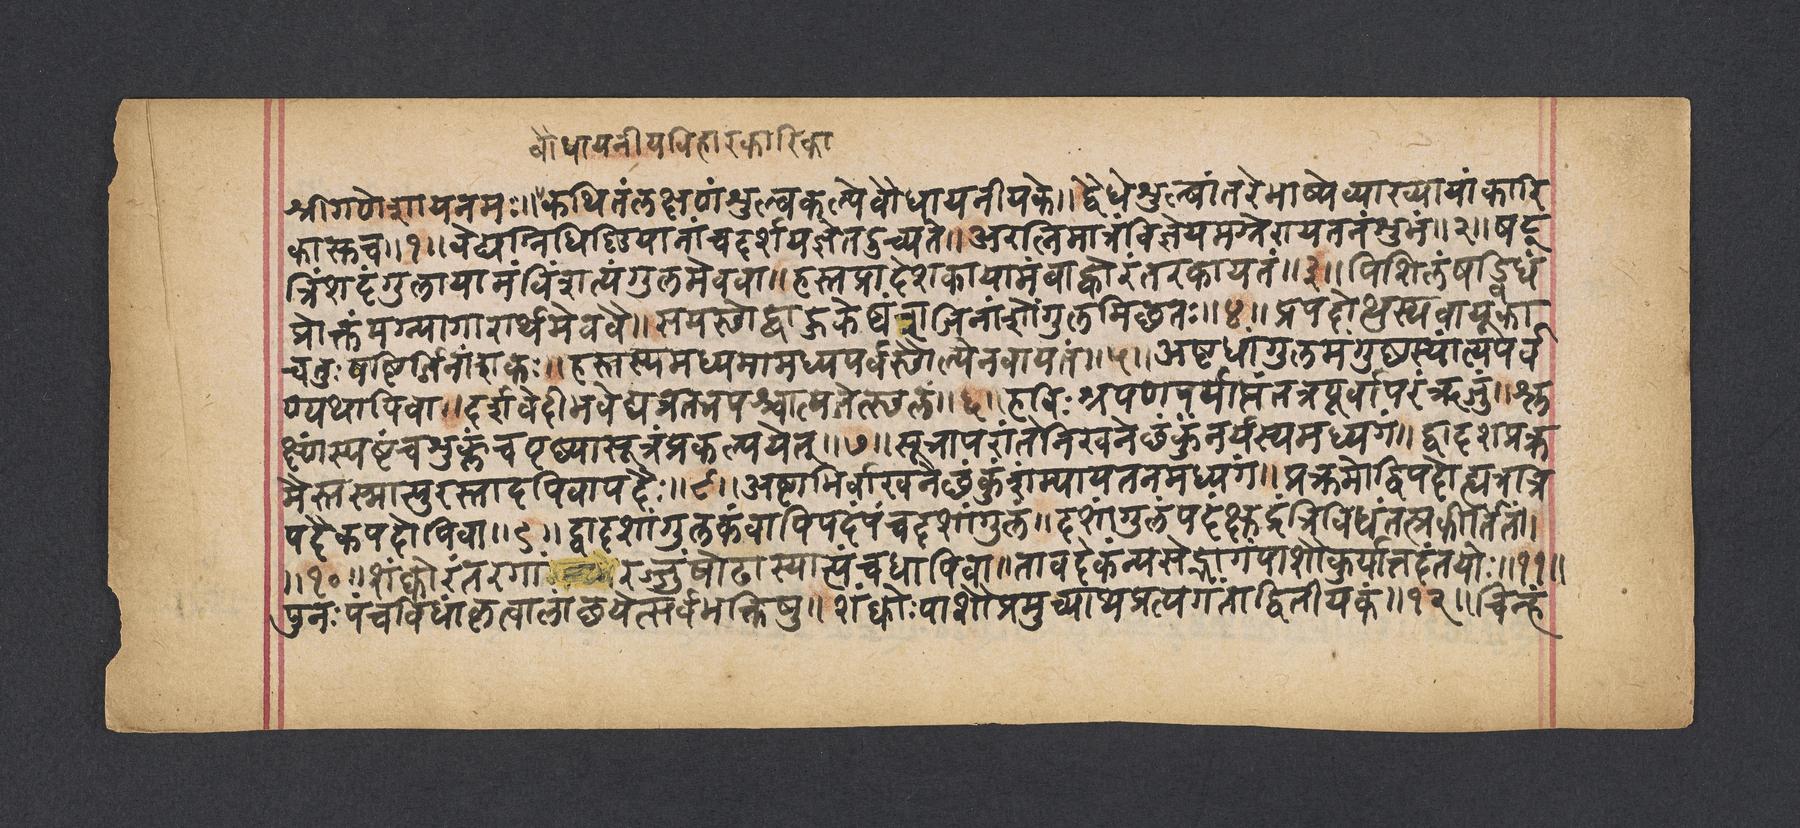 बौधायनीयविहारकारिका
श्रीगणेशायनमः॥कथितंलक्षणंशुल्वकल्पेबौधायनीयके॥द्वैधेशुल्बांतरेभाष्येव्याख्यायांकारि
कास्तच॥१॥वेद्यग्निधिष्णियानांचदर्शयज्ञेतदुच्यते॥अरत्निमात्रंविज्ञेयमग्नेरायतनंशुभं॥२॥षट्
त्रिंशदंगुलायामंविंशत्यंगुलमेववा॥हस्तप्रादेशकायामंबाह्वोरंतरकायतं॥३॥पिशिलंषड्विधं
प्रोक्तंमग्न्यागारार्थमेववै॥
चतुःषष्टि हस्तस्यमध्यमामध्यपर्वस्थौल्येनवायतं॥५॥अष्टधांगुलमंगुष्ठस्यांत्यपर्व
ण्यथापिवा॥दर्शवेदीभवेद्यत्रतत्रपश्चात्समेस्थले॥६॥हविःश्रपणपर्याप्तंतत्रपूर्वापरंऋजुं॥श्ल
क्ष्णंस्पष्टंचशुक्लंचपृष्ठ्यासूत्रंप्रकल्पयेत्॥७॥सूत्रापरांतेनिखनेछंकुंनर्यस्यमध्यगं॥द्वादशप्रक्र
मैस्तस्मात्पुरस्तादपिवापदैः॥८॥अष्टाभिर्वाखनेछंकुंशंम्यायतनमध्यगं॥प्रक्रमोद्विपदोह्यत्रत्रि
पदैकपदोपिवा॥९॥द्वादशांगुलकंवापिपदंपंचदशांगुलं॥दशांगुलंपदंक्षुद्रंत्रिविधंतत्प्रकीर्तितं।
॥१०॥शंक्वोरंतरगां रज्जुंषोढास्यात्पंचधापिवा॥तावदेकंन्यसेद्भागंपाशौकुर्यात्तदंतयोः॥११॥
पुनःपंचविधांकृत्वालांछयेत्सर्वभक्तिषु॥शंक्वोःपाशौप्रमुच्याथप्रत्यगतोद्वितीयकं॥१२॥चिन्हं